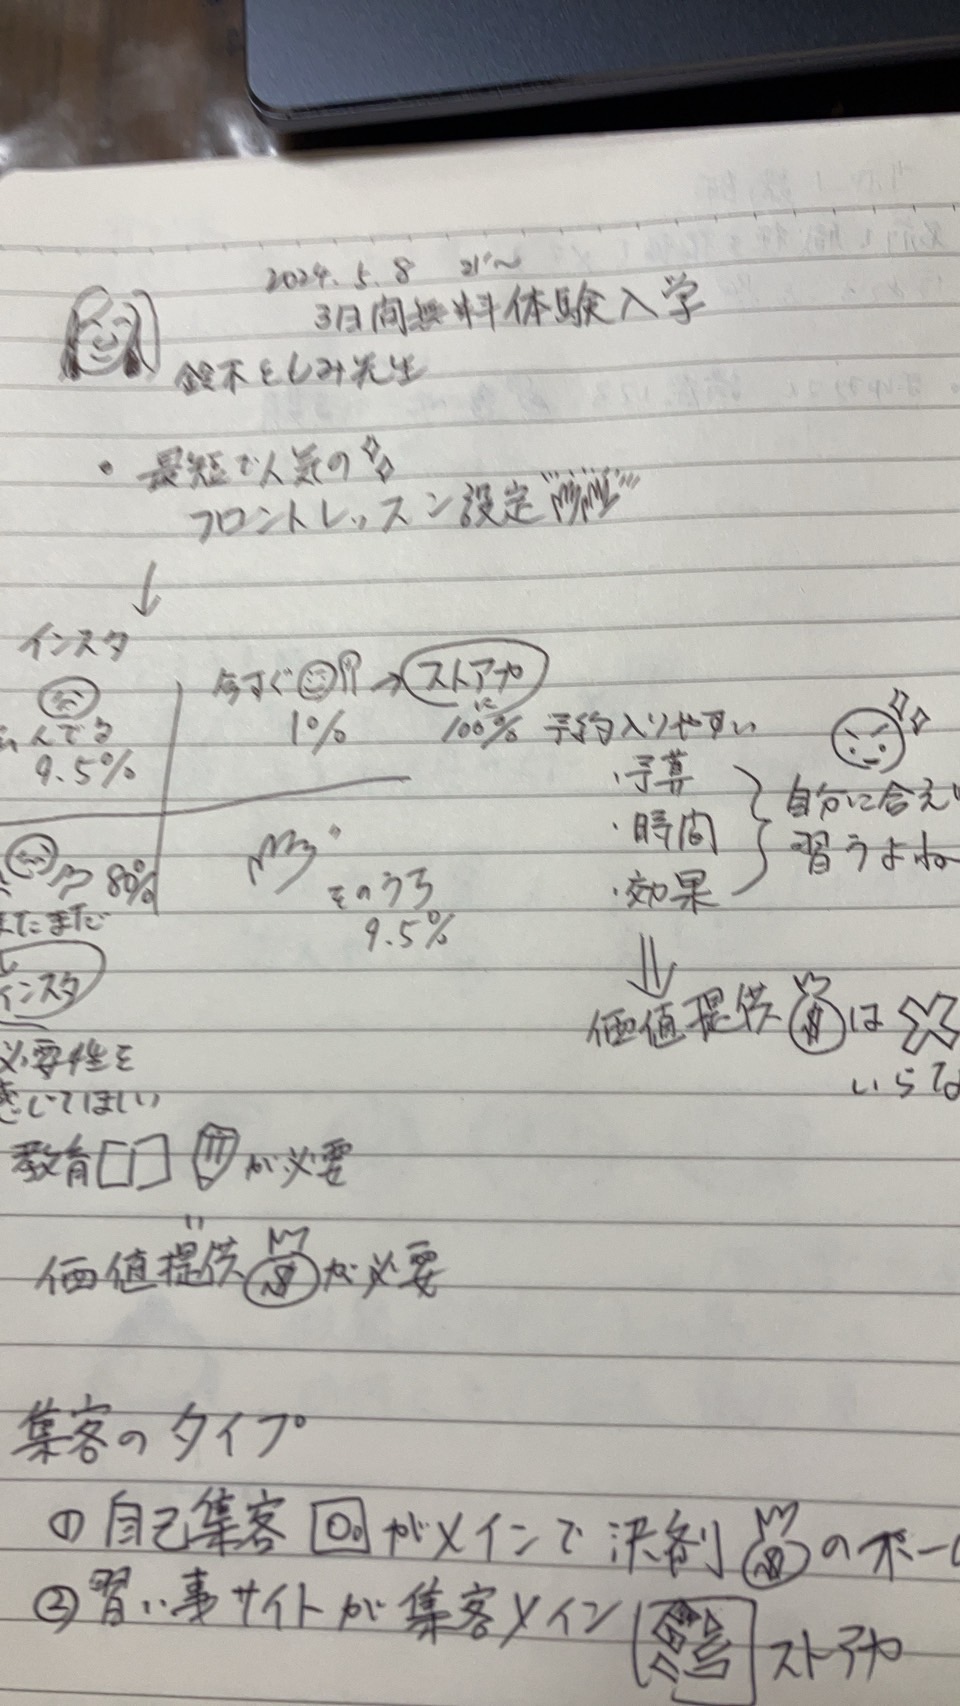 2024.5.8 21:~
3日間無料体験入学
鈴木としみ先生
・最短で人気の
フロントレッスン設定
↓
インスタ
んでる
9.5%
80%
まだまだ
インスタ
必要性を
感じてほしい
今すぐ → ストアカ
1% に100%
そのうち
9.5%
予約入りやすい
・予算
・時間
・効果
自分に合えば
習うよねー
⇓
価値提供 は ×
いらな
教育 が必要
価値提供 が必要
集客のタイプ
① 自己集客 がメインで決済 のポー
② 習い事サイトが集客メイン ストアカ